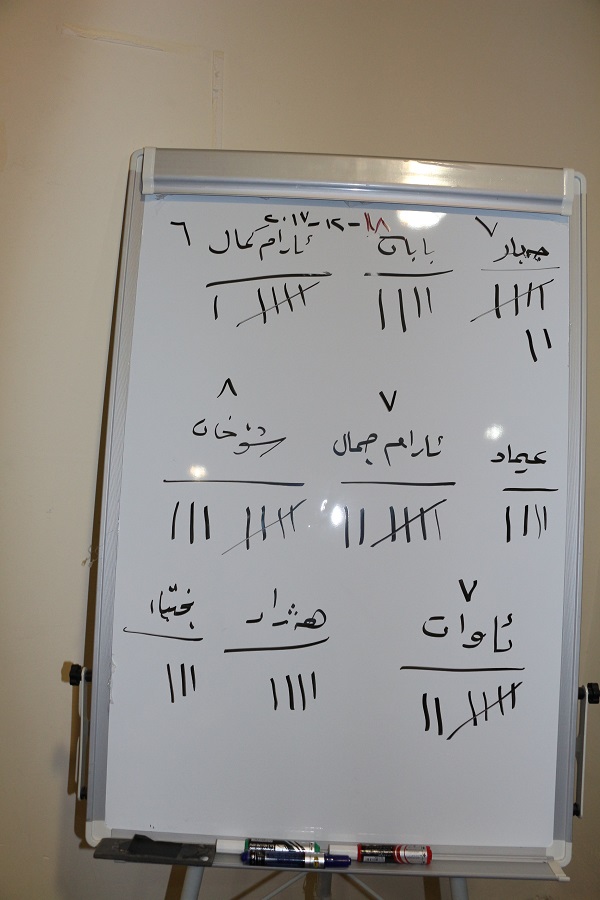 ٢٠١٧-١٢-١٨
جبار ٧
بابان
ئارام کمال ٦
عیماد
ئارام جمال ٧
شوخان ٨
ئاوات ٧
هەژار
بختیار